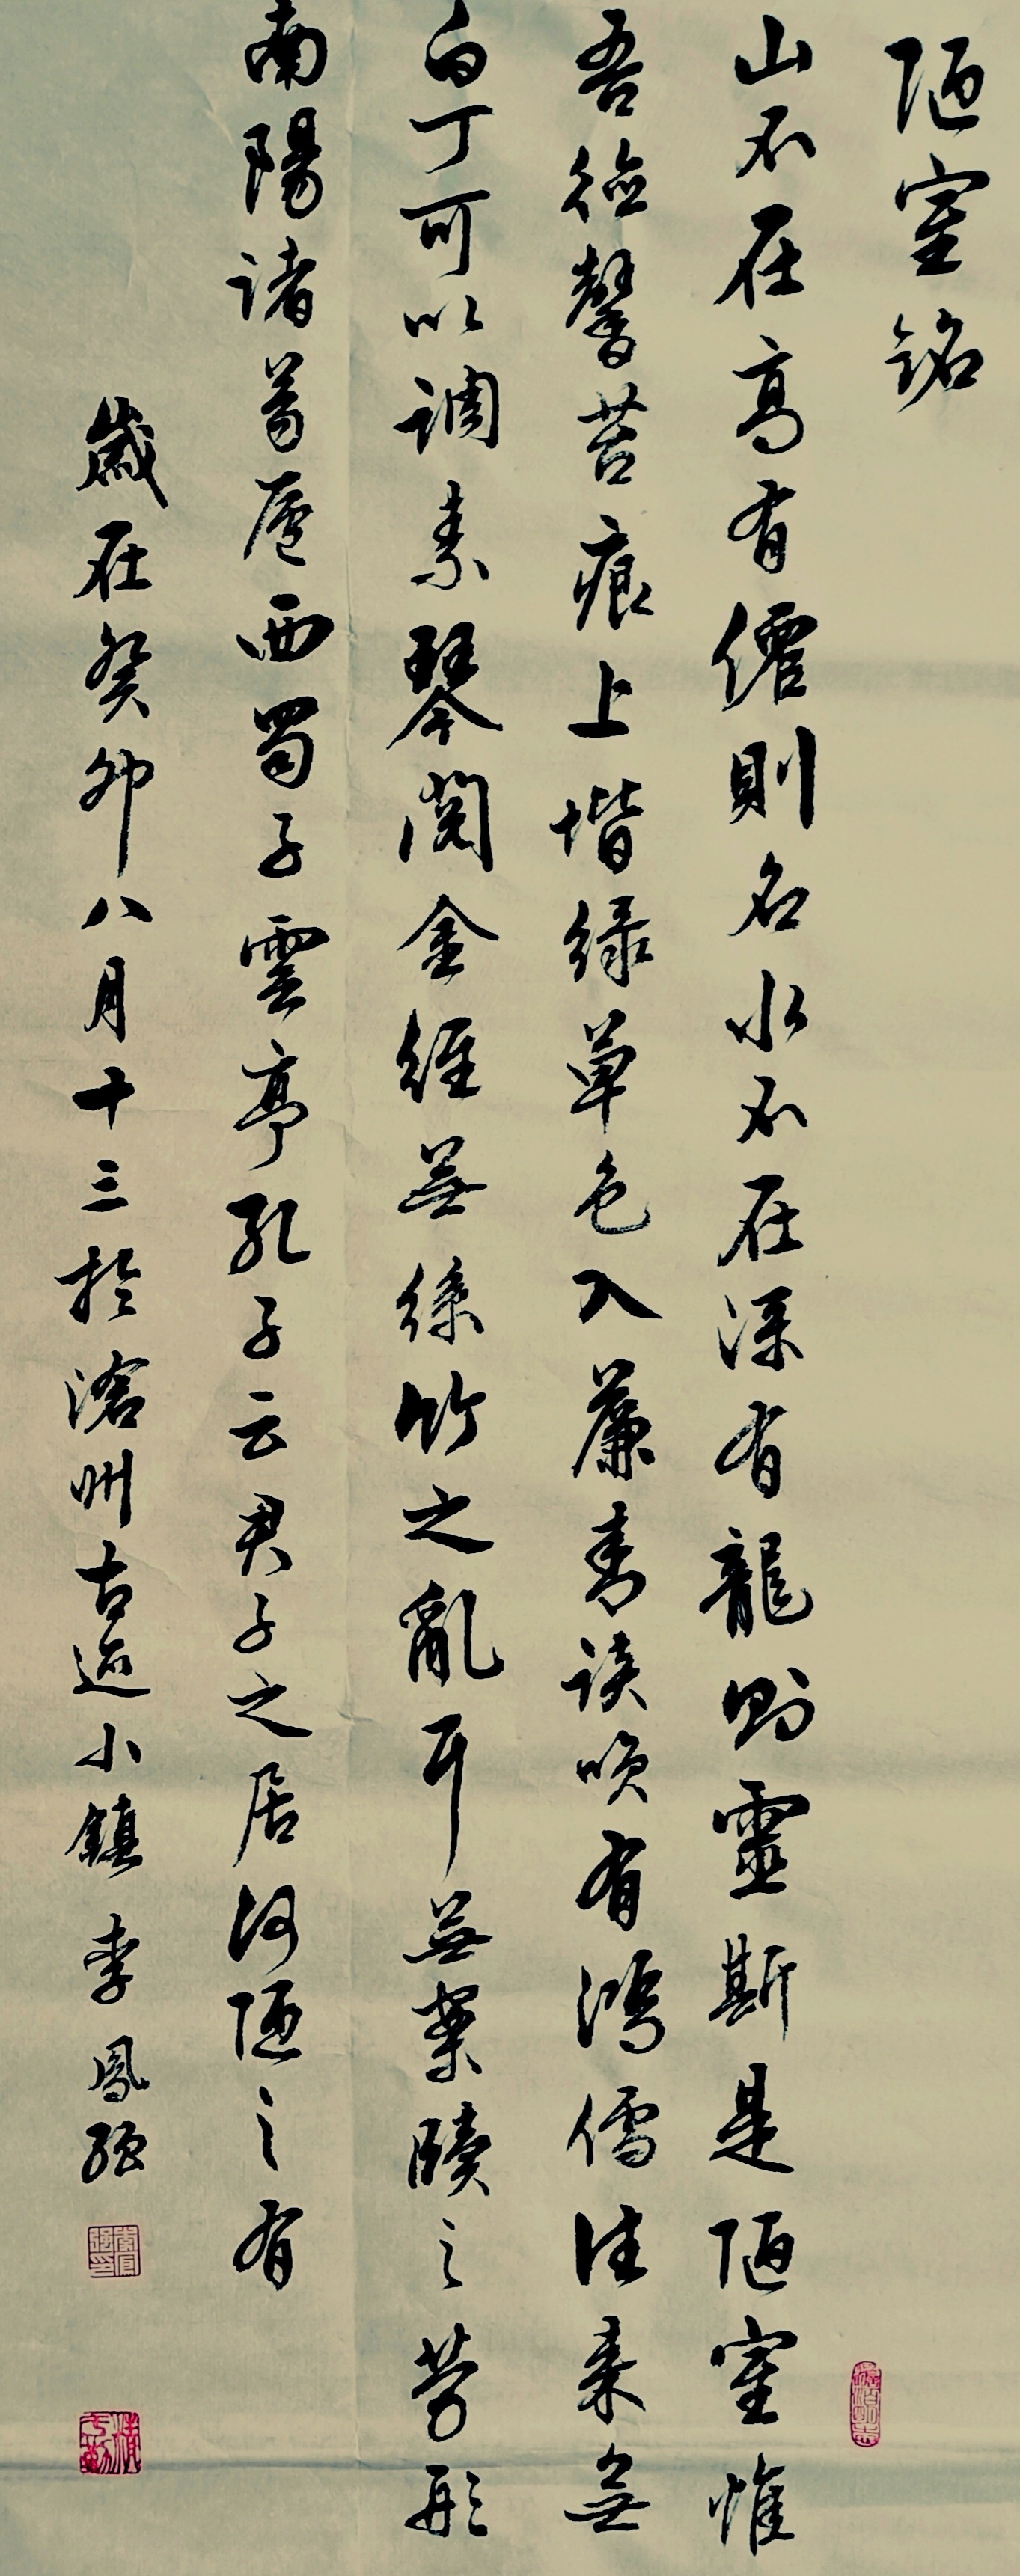 陋室銘
山不在高有僊則名水不在深有龍則靈斯是陋室惟
吾德馨苔痕上堦緑草色入簾青談咲有鴻儒往来無
白丁可以調素琴閲金經無絲竹之亂耳無案牘之勞形
南陽諸葛廬西蜀子雲亭孔子云君子之居何陋之有
歲在癸卯八月十三於滄州古迹小鎮李鳳強